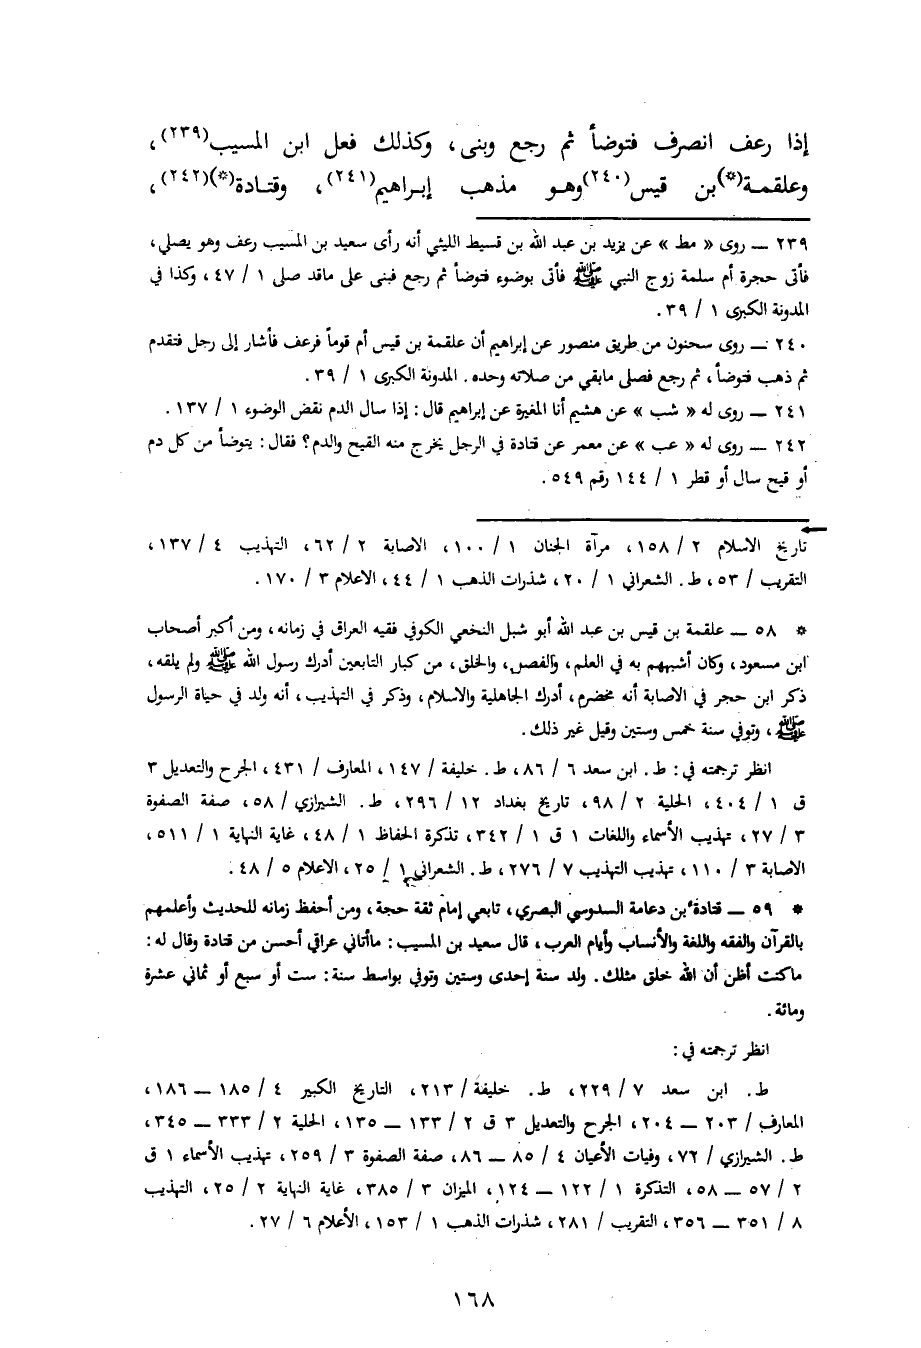 إذا رعف انصرف فتوضأ ثم رجع وبنى، وكذلك فعل ابن المسيب(٢٣٩)،
وعلقمة(*)بن قيس(٢٤٠)وهو مذهب إبراهيم(٢٤١)، وقتادة(*)(٢٤٢)،
٢٣٩ — روى « مط » عن يزيد بن عبد الله بن قسيط الليثي أنه رأى سعيد بن المسيب رعف وهو يصلي،
فأتى حجرة أم سلمة زوج النبي ﷺ فأتى بوضوء فتوضأ ثم رجع فبنى على ماقد صلى ١ / ٤٧، وكذا في
المدونة الكبرى ١ / ٣٩.
٢٤٠ — روى سحنون من طريق منصور عن إبراهيم أن علقمة بن قيس أم قوماً فرعف فأشار إلى رجل فتقدم
ثم ذهب فتوضأ، ثم رجع فصلى مابقي من صلاته وحده. المدونة الكبرى ١ / ٣٩.
٢٤١ — روى له « شب » عن هشيم أنا المغيرة عن إبراهيم قال: إذا سال الدم نقض الوضوء ١ / ١٣٧.
٢٤٢ — روى له « عب » عن معمر عن قتادة في الرجل يخرج منه القيح والدم؟ فقال: يتوضأ من كل دم
أو قيح سال أو قطر ١ / ١٤٤ رقم ٥٤٩.
تاريخ الاسلام ٢ / ١٥٨، مرآة الجنان ١ / ١٠٠، الاصابة ٢ / ٦٢، التهذيب ٤ / ١٣٧،
التقريب / ٥٣، ط. الشعراني ١ / ٢٠، شذرات الذهب ١ / ٤٤، الاعلام ٣ / ١٧٠.
* ٥٨ — علقمة بن قيس بن عبد الله أبو شبل النخعي الكوفي فقيه العراق في زمانه، ومن أكبر أصحاب
ابن مسعود، وكان أشبههم به في العلم، والفصن، والخلق، من كبار التابعين أدرك رسول الله ﷺ ولم يلقه،
ذكر ابن حجر في الاصابة أنه مخضرم، أدرك الجاهلية والاسلام، وذكر في التهذيب، أنه ولد في حياة الرسول
ﷺ، وتوفي سنة خمس وستين وقيل غير ذلك.
انظر ترجمته في: ط. ابن سعد ٦ / ٨٦، ط. خليفة / ١٤٧، المعارف / ٤٣١، الجرح والتعديل ٣
ق ١ / ٤٠٤، الحلية ٢ / ٩٨، تاريخ بغداد ١٢ / ٢٩٦، ط. الشيرازي / ٥٨، صفة الصفوة
٣ / ٢٧، تهذيب الأسماء واللغات ١ ق ١ / ٣٤٢، تذكرة الحفاظ ١ / ٤٨، غاية النهاية ١ / ٥١١،
الاصابة ٣ / ١١٠، تهذيب التهذيب ٧ / ٢٧٦، ط. الشعراني ١ / ٢٥، الاعلام ٥ / ٤٨.
* ٥٩ — قتادة بن دعامة السدوسي البصري، تابعي إمام ثقة حجة، ومن أحفظ زمانه للحديث وأعلمهم
بالقرآن والفقه واللغة والأنساب وأيام العرب، قال سعيد بن المسيب: ماأتاني عراقي أحسن من قتادة وقال له:
ماكنت أظن أن الله خلق مثلك. ولد سنة إحدى وستين وتوفي بواسط سنة: ست أو سبع أو ثماني عشرة
ومائة.
انظر ترجمته في:
ط. ابن سعد ٧ / ٢٢٩، ط. خليفة / ٢١٣، التاريخ الكبير ٤ / ١٨٥ — ١٨٦،
المعارف / ٢٠٣ — ٢٠٤، الجرح والتعديل ٣ ق ٢ / ١٣٣ — ١٣٥، الحلية ٢ / ٣٣٣ — ٣٤٥،
ط. الشيرازي / ٧٦، وفيات الأعيان ٤ / ٨٥ — ٨٦، صفة الصفوة ٣ / ٢٥٩، تهذيب الأسماء ١ ق
٢ / ٥٧ — ٥٨، التذكرة ١ / ١٢٢ — ١٢٤، الميزان ٣ / ٣٨٥، غاية النهاية ٢ / ٢٥، التهذيب
٨ / ٣٥١ — ٣٥٦، التقريب / ٢٨١، شذرات الذهب ١ / ١٥٣، الأعلام ٦ / ٢٧.
١٦٨